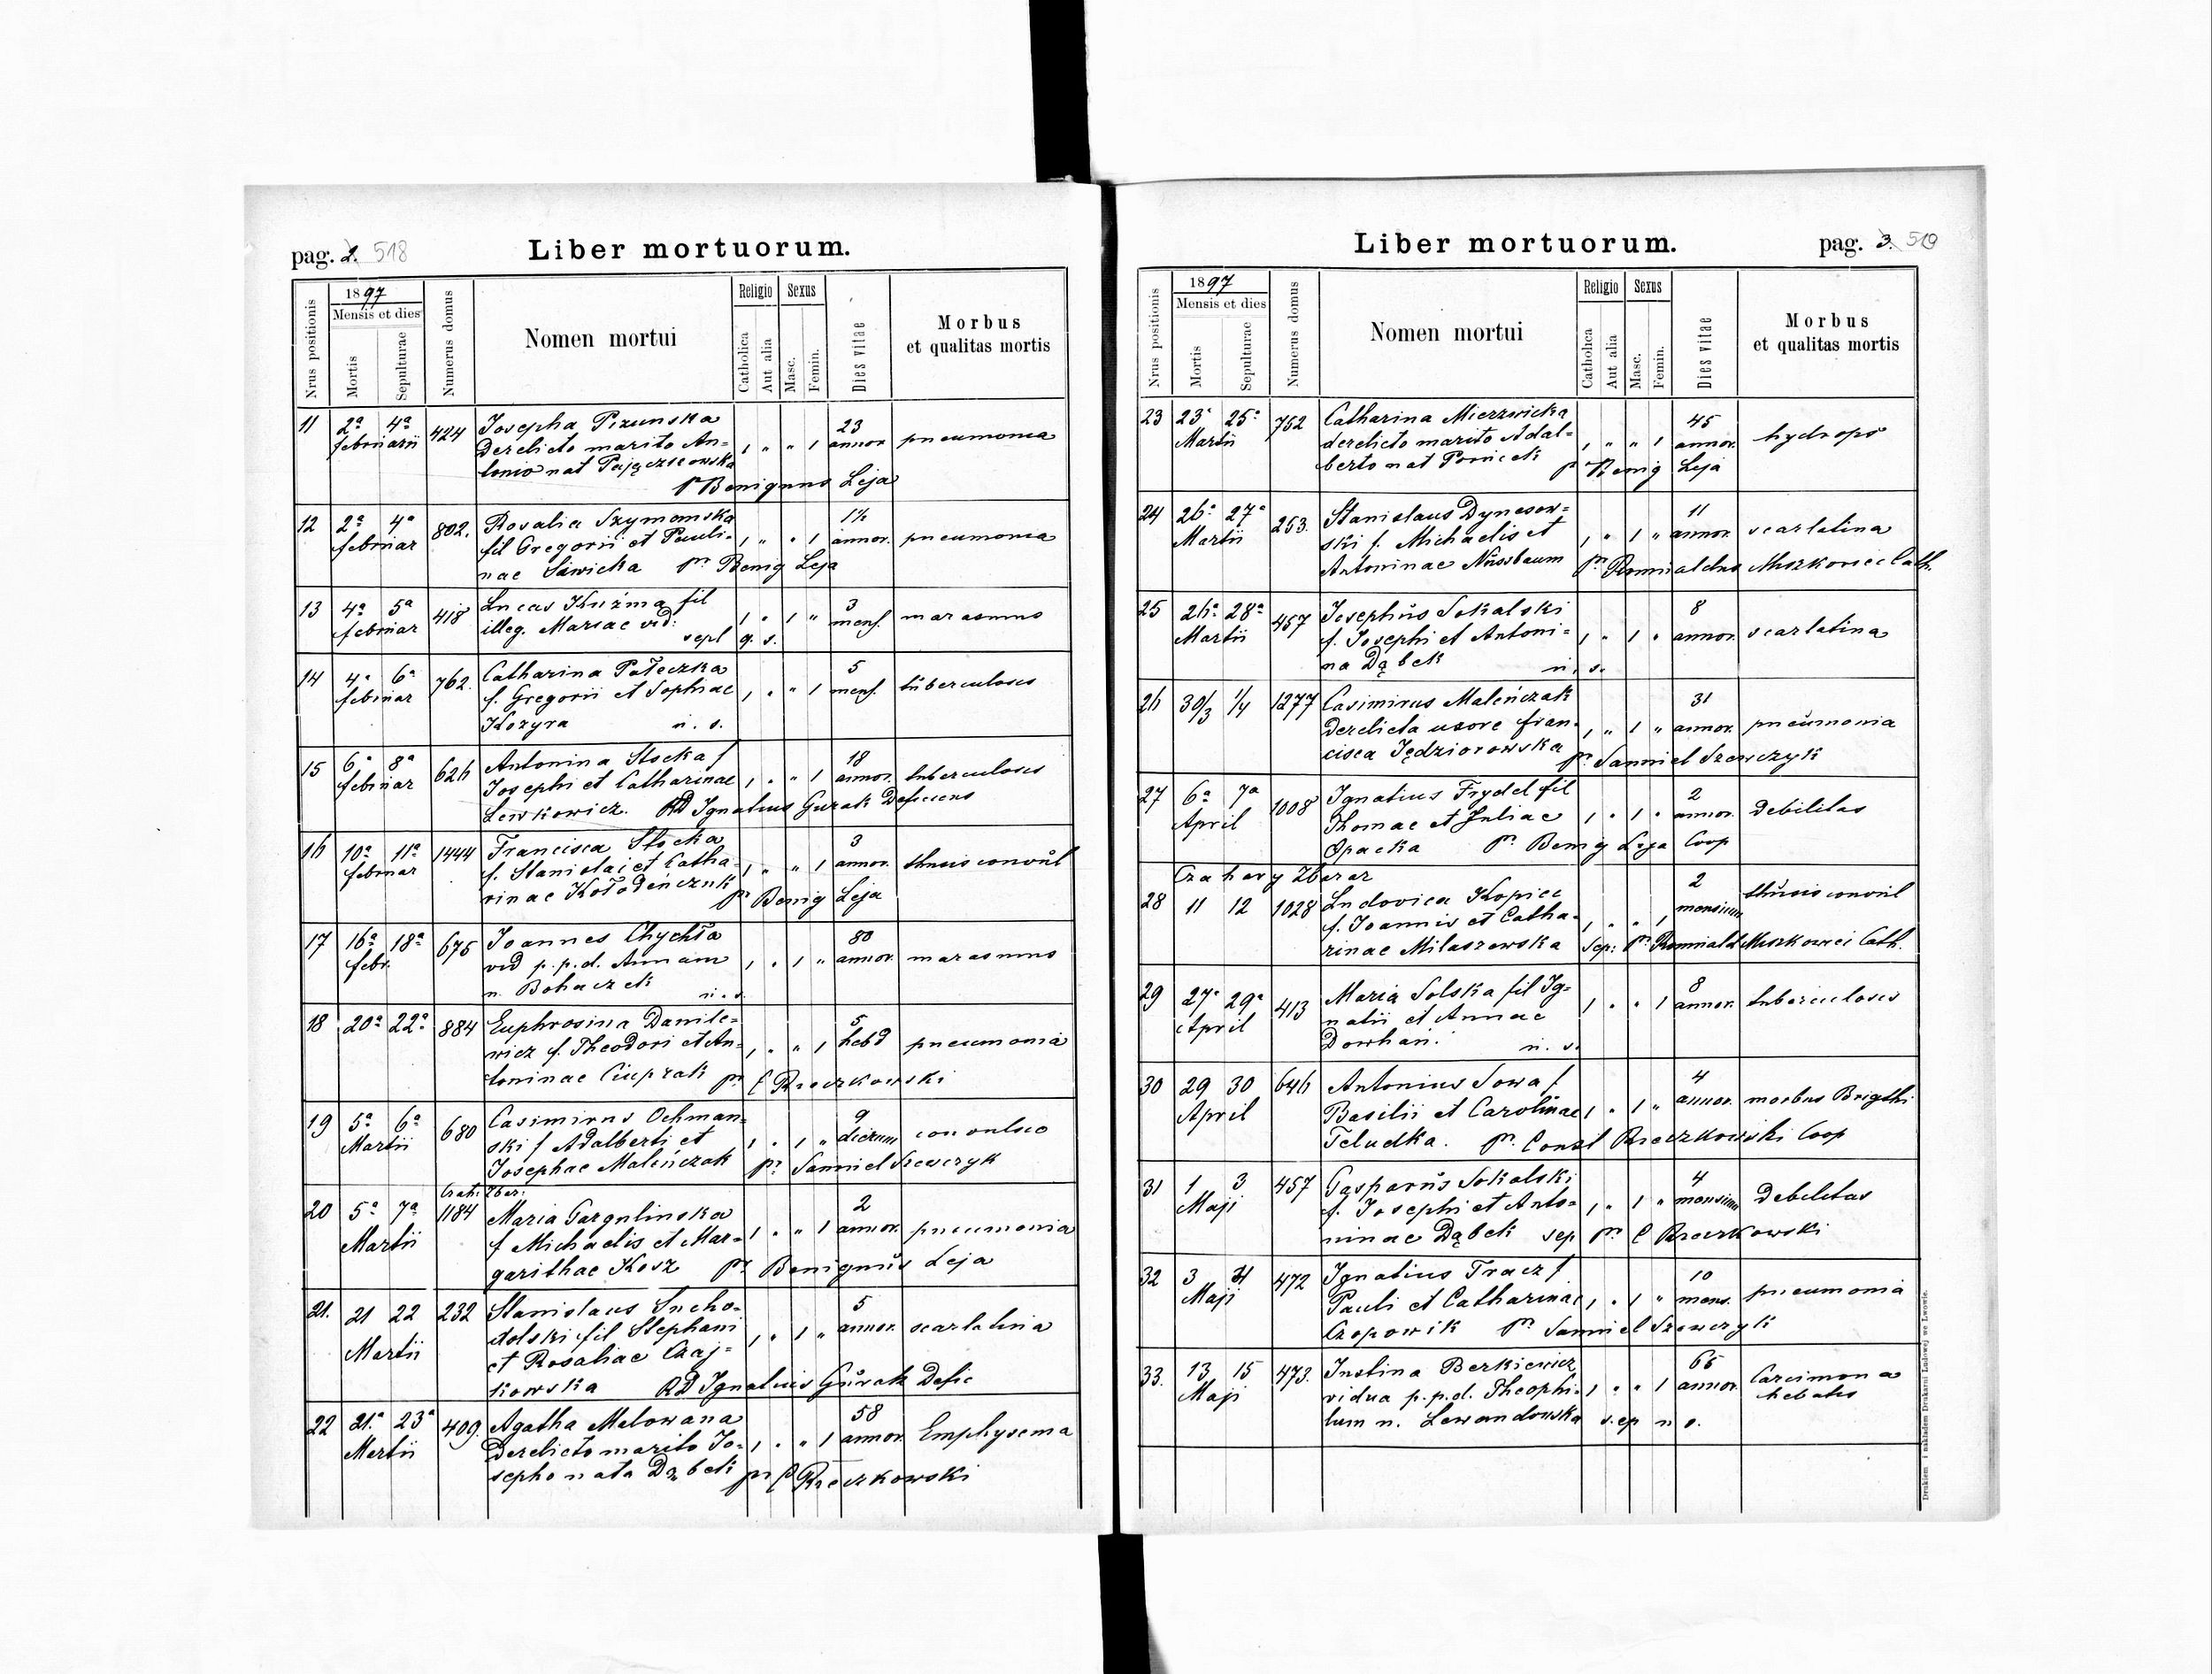 pag. 2. 518
Liber mortuorum.
Nrus positionis
1897
Mensis et dies
Mortis
Sepulturae
Numerus domus
Nomen mortui
Religio
Catholica
Aut alia
Sexus
Masc.
Femin.
Dies vitae
Morbus
et qualitas mortis
11 2ª 4ª 424 Josepha Pizunska 23
februarii Derelicto marito An= 1 " " 1 annor pneumonia
tonio nat Pajączkowska
Pr Benignus Leja
12 2ª 4ª 802. Rosalia Szymonska 1½
februar fil Gregorii et Pauli= 1 " " 1 annor. pneumonia
nae Sawicka pr Benig Leja
13 4ª 5ª 418 Lucas Kuźma fil 3
februar illeg. Mariae vid: 1 " 1 " mens. marasmus
sepl q. s.
14 4ª 6ª 762. Catharina Połeczka 5
februar f. Gregorii et Sophiae 1 " " 1 mens. tuberculosis
Kozyra u. s.
15 6ª 8ª 626 Antonina Stocka f 18
februar Josephi et Catharinae 1 " " 1 annor. tuberculosis
Lewkowicz. RD Ignatius Gurak Deficiens
16 10ª 11ª 1444 Francisca Stocka 3
februar f. Stanislai et Catha= 1 " " 1 annor. thusis convul
rinae Kołodeńczuk pr Benig Leja
17 16ª 18ª 675 Joannes Chychła 80
febr. vid p.p.d. Annam 1 " 1 " annor. marasmus
n. Bohaczek u. s.
18 20ª 22ª 884 Euphrosina Danile= 5
wicz f. Theodori et An= 1 " " 1 hebd pneumonia
toninae Ciuprak pr C Raczkowski
19 5ª 6ª 680 Casimirus Ochman= 9
Martii ski f Adalberti et 1 " 1 " dierum convulsio
Josephae Maleńczak pr Samuel Szewczyk
Crah: Zbar:
20 5ª 7ª 1184 Maria Gargulinska 2
Martii f Michaelis et Mar= 1 " " 1 annor. pneumonia
garithae Kosz pr Benignus Leja
21. 21 22 232 Stanislaus Sucho= 5
Martii dolski fil Stephani 1 " 1 " annor. scarlatina
et Rosaliae Czaj=
kowska RD Ignatius Gurak Defic
22 21ª 23ª 409. Agatha Melowana 58
Martii Derelicto marito Jo= 1 " " 1 annor. Emphysema
sepho nata Dąbek pr C Raczkowski
Liber mortuorum.
pag. 3. 519
Nrus positionis
1897
Mensis et dies
Mortis
Sepulturae
Numerus domus
Nomen mortui
Religio
Catholica
Aut alia
Sexus
Masc.
Femin.
Dies vitae
Morbus
et qualitas mortis
23 23ª 25ª 752 Catharina Mierzwicka 45
Martii derelicto marito Adal= 1 " " 1 annor. hydrops
berto nat Powicek p Benig Leja
24 26ª 27ª 253. Stanislaus Dynesow= 11
Martii ski f. Michaelis et 1 " 1 " annor. scarlatina
Antoninae Nussbaum pr Romualdus Muszkowici Cath.
25 26ª 28ª 457 Josephus Sokalski 8
Martii f. Josephi et Antoni= 1 " 1 " annor. scarlatina
na Dąbek u. s.
26 30/3 1/4 1277 Casimirus Maleńczak 31
Derelicta uxore Fran= 1 " 1 " annor. pneumonia
cisca Jędziorowska pr. Samuel Szewczyk
27 6ª 7ª 1008 Ignatius Frydel fil 2
April Thomae et Juliae 1 " 1 " annor. Debilitas
Opacka pr. Benig Leja Coop
Czahary Zbaraz
28 11 12 1028 Ludovica Kopiec 2
f. Joannis et Catha= 1 " " 1 mensium thusis convul
rinae Milaszewska sep: Pr Romuald Muszkowici Cath.
29 27ª 29ª 413 Maria Solska fil Ig= 8
April natii et Annae 1 " " 1 annor. tuberculosis
Dowhań. u. s.
30 29 30 646 Antonius Sowa f 4
April Basilii et Carolinae 1 " 1 " annor. morbus Brigthi
Teludka. pr. Const Raczkowski Coop
31 1 3 457 Gasparus Sokalski 4
Maji f. Josephi et Anto= 1 " 1 " mensium Debilitas
ninae Dąbek sep pr C Raczkowski
32 3 4 472 Ignatius Tracz f 10
Maji Pauli et Catharinae 1 " 1 " mens. pneumonia
Czopowik pr Samuel Szewczyk
33. 13 15 473. Justina Berkiewicz 65
Maji vidua p.p.d. Theophi= 1 " " 1 annor. Carcimona
lum n. Lewandowska sep u s. hebatis
Drukiem i nakładem Drukarni Ludowej we Lwowie.